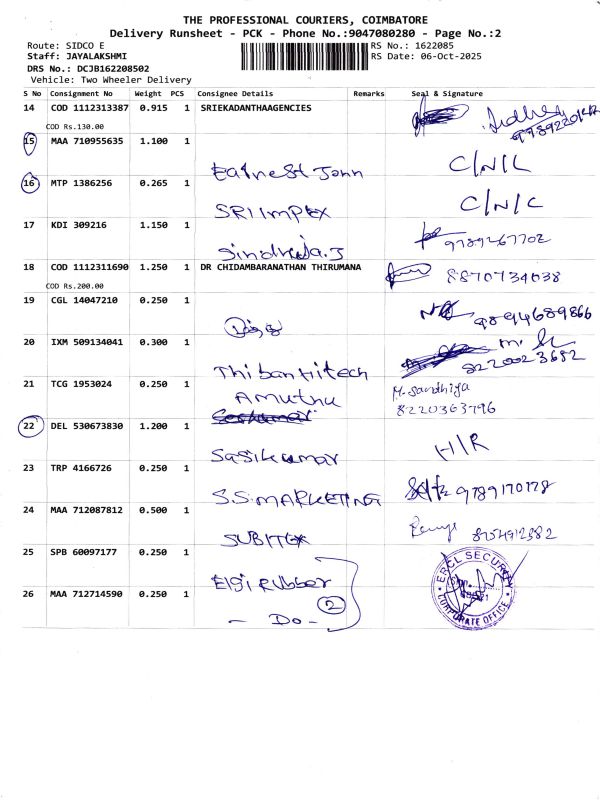 THE PROFESSIONAL COURIERS, COIMBATORE
Delivery Runsheet - PCK - Phone No.:9047080280 - Page No.:2
Route: SIDCO E
RS No.: 1622085
Staff: JAYALAKSHMI
RS Date: 06-Oct-2025
DRS No.: DCJB162208502
Vehicle: Two Wheeler Delivery
S No Consignment No Weight PCS Consignee Details Remarks Seal & Signature
14 COD 1112313387 0.915 1 SRIEKADANTHAAGENCIES
COD Rs.130.00
15 MAA 710955635 1.100 1
Earnest John C/N/L
16 MTP 1386256 0.265 1
SRI IMPEX C/N/C
17 KDI 309216 1.150 1
9789267702
18 COD 1112311690 1.250 1 DR CHIDAMBARANATHAN THIRUMANA
COD Rs.200.00
8870734038
19 CGL 14047210 0.250 1
9894689866
20 IXM 509134041 0.300 1
Thiban Hitech 8220023652
21 TCG 1953024 0.250 1
Amuthu
M. Sandhiya
8220363796
22 DEL 530673830 1.200 1
Sasikumar H/R
23 TRP 4166726 0.250 1
S.S. MARKETING 9789170178
24 MAA 712087812 0.500 1
SUBITEX
25 SPB 60097177 0.250 1
Elgi Rubber
26 MAA 712714590 0.250 1
- Do - 2
ERCL SECURITY
CORPORATE OFFICE